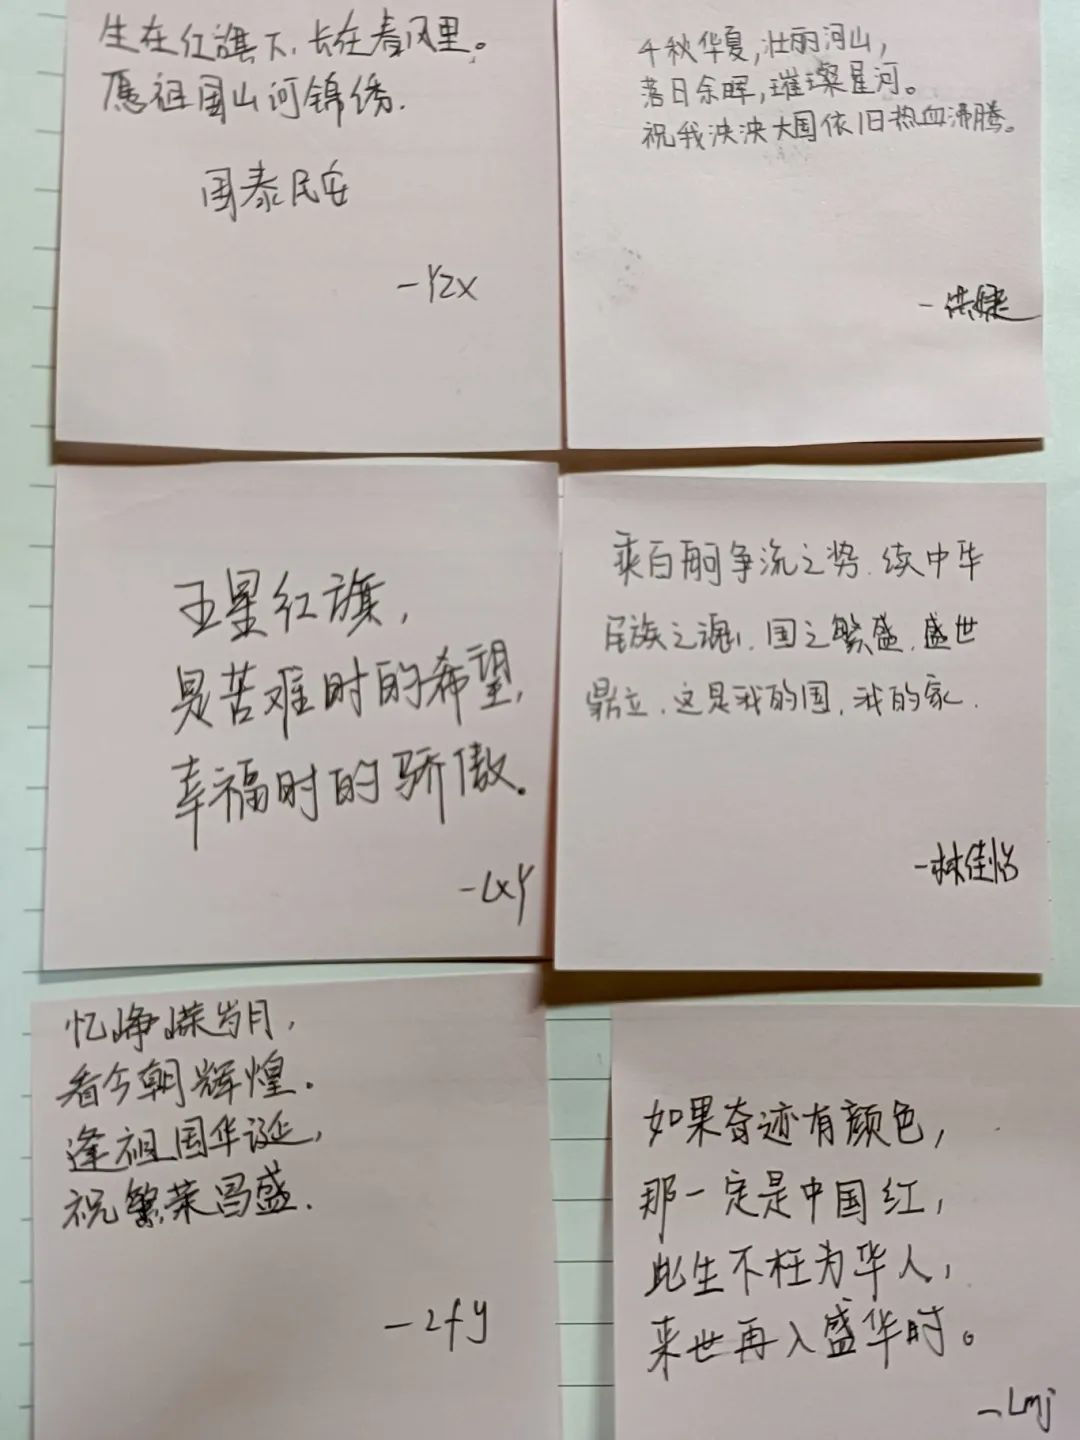 生在红旗下,长在春风里。
愿祖国山河锦绣.
国泰民安
-Yzx
千秋华夏,壮丽河山,
落日余晖,璀璨星河。
祝我泱泱大国依旧热血沸腾。
五星红旗,
是苦难时的希望,
幸福时的骄傲。
-LxY
乘百舸争流之势.续中华
民族之魂,国之繁盛.盛世
鼎立.这是我的国,我的家.
-林佳怡
忆峥嵘岁月,
看今朝辉煌.
逢祖国华诞,
祝繁荣昌盛.
-zfy
如果奇迹有颜色,
那一定是中国红,
此生不枉为华人,
来世再入盛华时。
-Lmj